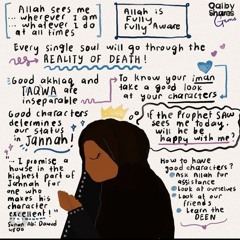 Allah sees me
... wherever I am
... whatever I do
at all times
Allah is
Fully
Fully Aware
qalby
shares
Gems
Every single soul will go through the
REALITY OF DEATH!
Good akhlaq and
TAQWA are
inseparable
To know your iman
take a good look
at your characters
Good characters
determines
our status
in Jannah!
If the Prophet SAW
sees me today,
will he be
happy with me?
"... I promise a
house in the
highest part of
Jannah for
one who
makes his
character
excellent!"
Sunan Abi Dawud
4800
How to have
good characters?
Ask Allah for
assistance
Look at ourselves
Look at our
friends
Learn the
DEEN